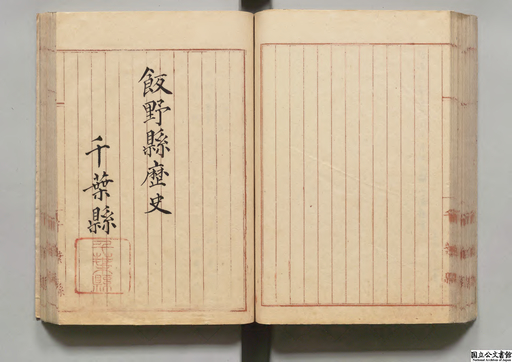 飯野縣歷史
千葉縣
千葉縣
国立公文書館
National Archives of Japan